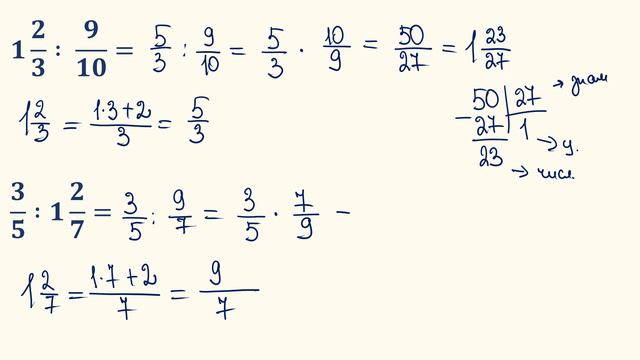 1 2/3 : 9/10 = 5/3 : 9/10 = 5/3 · 10/9 = 50/27 = 1 23/27
1 2/3 = (1·3+2)/3 = 5/3
50 | 27 → знам
− 27 | 1 → ц.
23 → числ
3/5 : 1 2/7 = 3/5 : 9/7 = 3/5 · 7/9 −
1 2/7 = (1·7+2)/7 = 9/7